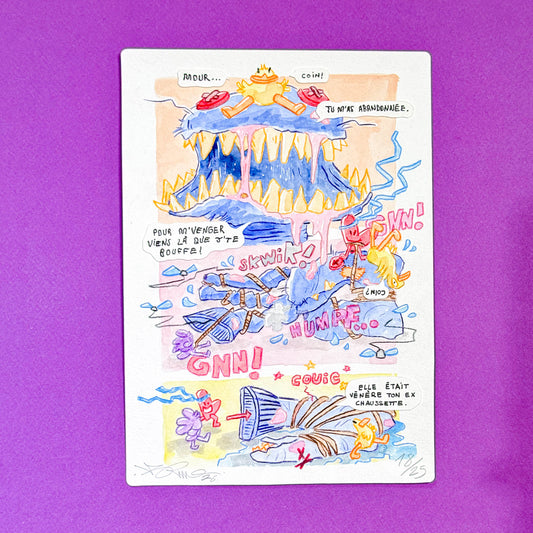 MOUR...
COIN!
TU M'AS ABANDONNÉE.
POUR M'VENGER
VIENS LÀ QUE J'TE
BOUFFE!
GNN!
SKWIK!
COIN?
HUMPF...
GNN!
COUIC
ELLE ÉTAIT
VÉNÈRE TON EX
CHAUSSETTE.
/25